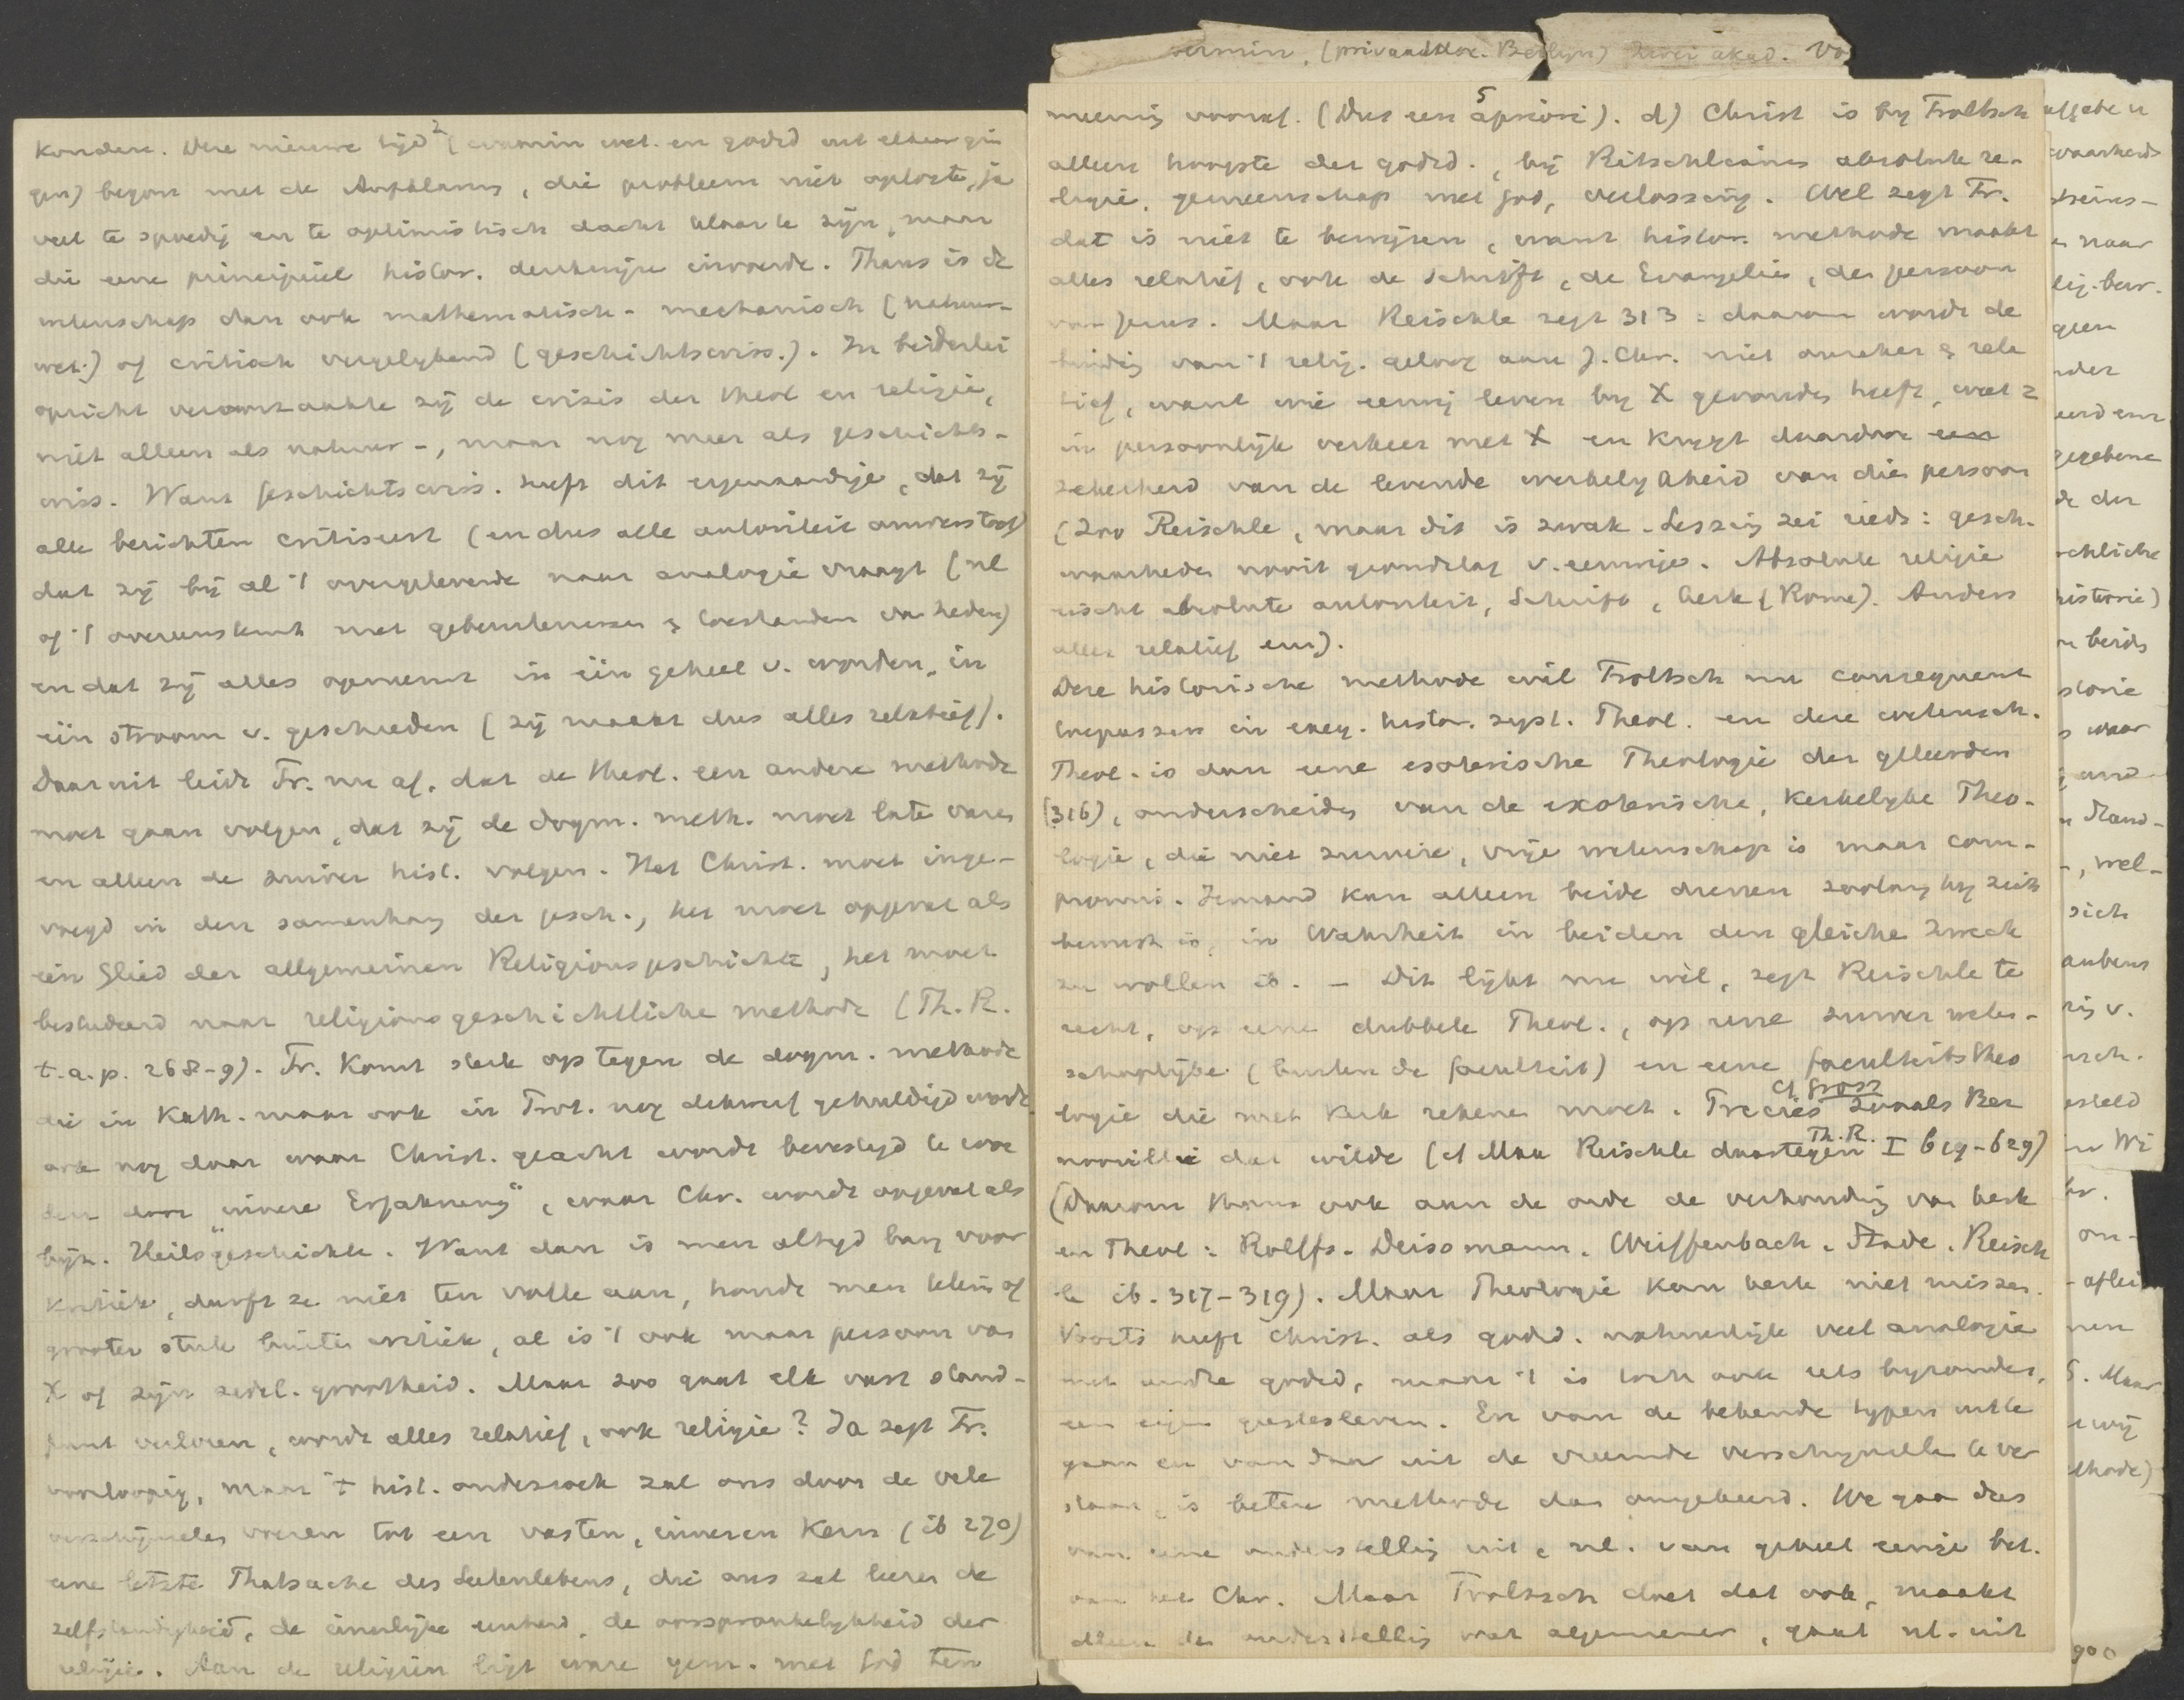 2
konden. Deze nieuwe tijd (waarin wet. en godsd uit elkaar gin
gen) begon met de Aufklärung, die probleem niet oploste, ja
veel te spoedig en te optimistisch dacht klaar te zijn, maar
die eene principieel histor. denkwijze invoerde. Thans is de
wetenschap dan ook mathematisch-mechanisch (natuur-
wet.) of critisch vergelykend (geschichtswiss.). In beiderlei
opzicht veroorzaakte zij de crisis der theol en religie,
niet alleen als natuur-, maar nog meer als geschichts-
wiss. Want Geschichtswiss. heeft dit eigenaardige, dat zij
alle berichten critiseert (en dus alle autoriteit omverstoot)
dat zij bij al 't overgeleverde naar analogie vraagt (nl
of 't overeenkomt met gebeurtenissen & toestanden van heden)
en dat zij alles opneemt in één geheel v. worden, in
één stroom v. geschieden (zij maakt dus alles relatief).
Daaruit leidt Tr. nu af, dat de theol. een andere methode
moet gaan volgen, dat zij de dogm. meth. moet laten varen
en alleen de zuiver hist. volgen. Het Christ. moet inge-
voegd in den samenhang der gesch., het moet opgevat als
ein Glied der allgemeinen Religionsgeschichte, het moet
bestudeerd naar religionsgeschichtliche methode (Th. R.
t.a.p. 268-9). Tr. komt sterk op tegen de dogm. methode
die in Kath. maar ook in Prot. nog gehuldigd wordt
ook nog daar waar Christ. geacht wordt bevestigd te wor
den door "innere Erfahrung", waar Chr. wordt opgevat als
bijz. "Heilsgeschichte. Want dan is men altyd bang voor
kritiek, durft ze niet ten volle aan, houdt men klein of
grooter stuk buiten critiek, al is 't ook maar persoon van
X of zijn zedel. grootheid. Maar zoo gaat elk vast stand-
punt verloren, wordt alles relatief, ook religie? Ja zegt Tr.
voorloopig, maar 't hist. onderzoek zal ons door de vele
verschijnselen voeren tot een vasten, inneren Kern (ib 270)
eine letzte Thatsache des Seelenlebens, die ons zal leeren de
zelfstandigheid, de innerlijke eenheid, de oorspronkelykheid der
religie. Aan de religiën ligt ware gem. met God ten
ermin, (privaatdoc. Berlyn) Zwei akad. Vo
5
meenig vooraf. (Dus een apriori). d) Christ is by Troeltsch
alleen hoogste der godsd., bij Ritschleanen absolute re-
ligie, gemeenschap met God, verlossing. Wel zegt Tr.
dat is niet te bewijzen, want histor. methode maakt
alles relatief, ook de Schrift, de Evangeliën, den persoon
van Jezus. Maar Reischle zegt 313: daarom wordt de
van 't relig. geloof aan J. Chr. niet onzeker & rela
tief, want wie eeuwig leven by X gevonden heeft,
in persoonlijk verkeer met X en krygt daardoor een
zekerheid van de levende werkelykheid van die persoon
(Zoo Reischle, maar dit is zwak. Lessing zei reeds: gesch.
waarheden nooit grondslag v. eeuwige. Absolute religie
eischt absolute autoriteit, Schrift, kerk (Rome). Anders
alles relatief enz).
Deze historische methode wil Troeltsch nu consequent
toepassen in exeg. histor. syst. Theol. en deze wetensch.
Theol. is dan eene esoterische Theologie der geleerden
(316), onderscheiden van de exoterische, kerkelyke Theo-
logie, die niet zuivere, vrije wetenschap is maar com-
promis. Iemand kan alleen beide dienen zoolang hy zich
bewust is, in Wahrheit in beiden den gleichen Zweck
zu wollen ib. - Dit lijkt me wel, zegt Reischle te
recht, op eene dubbele Theol., op eene zuiver weten-
schaplijke (buiten de faculteit) en eene faculteitstheo
logie die met kerk rekenen moet. Precies zooals Ber
cf Gross
noouilli dat wilde (cf Max Reischle daartegen Th. R. I 619-629)
(Daarom thans ook aan de orde de verhouding van kerk
en Theol: Rolffs. Deissmann. Weiffenbach. Stade. Reisch
le ib. 317-319). Maar Theologie kan kerk niet missen.
Voorts heeft Christ. als godsd. natuurlijk veel analogie
met andere godsd, maar 't is toch ook iets byzonders,
een eigen geestesleven. En van de bekende typen uit te
gaan en van daar uit de vreemde verschynselen te ver
staan is betere methode dan omgekeerd. We gaan dus
van eene onderstelling uit, nl. van geheel eenige bet.
van het Chr. Maar Troeltsch doet dat ook, maakt
alleen de onderstelling wat algemeener, gaat nl. uit
waarheids
naar
gegebene
de der
historie)
n beids
waar
wel-
sich
aubens
ris v.
esteld
in Wi
on-
aflei
nen
S. Maar
ewij
ethode)
900